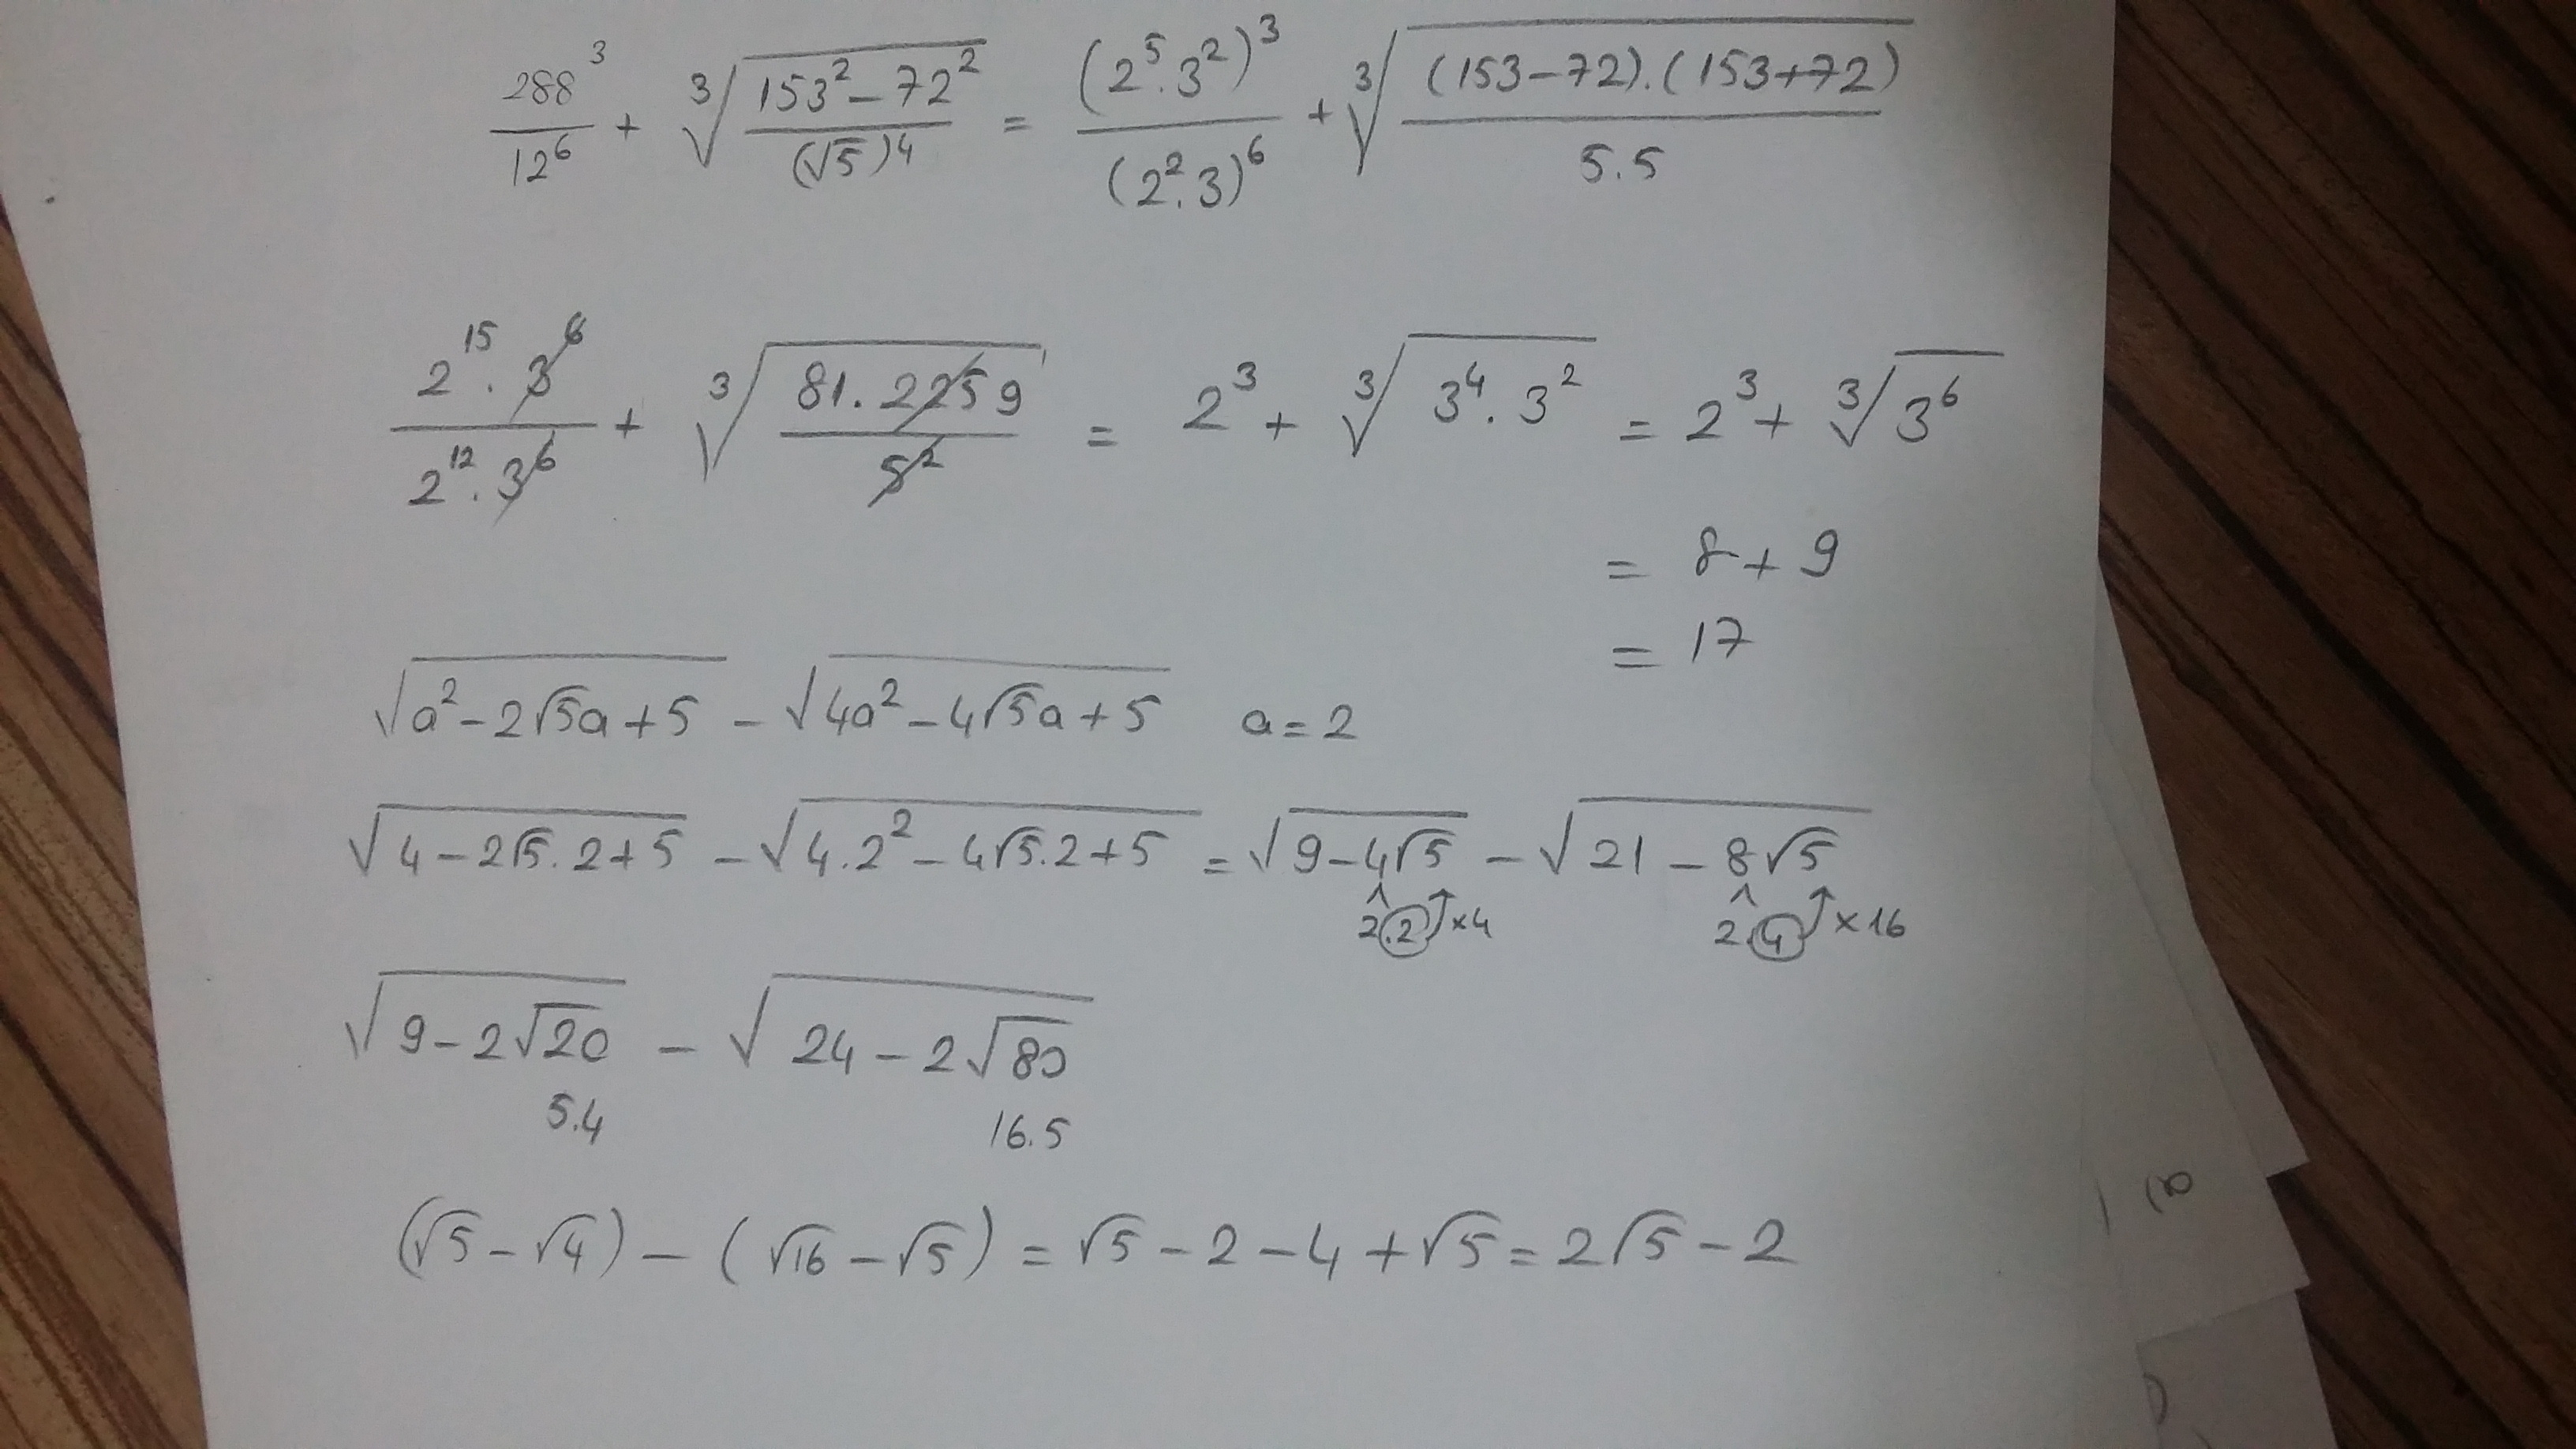 288³/12⁶ + ³√((153² − 72²)/(√5)⁴) = (2⁵.3²)³/(2².3)⁶ + ³√((153−72).(153+72)/5.5)
2¹⁵.3⁶/2¹².3⁶ + ³√(81.225 9/5²) = 2³ + ³√(3⁴.3²) = 2³ + ³√(3⁶)
= 8 + 9
= 17
√(a² − 2√5a + 5) − √(4a² − 4√5a + 5) a = 2
√(4 − 2√5.2 + 5) − √(4.2² − 4√5.2 + 5) = √(9 − 4√5) − √(21 − 8√5)
2.2 ×4 2.4 ×16
√(9 − 2√20) − √(24 − 2√80)
5.4 16.5
(√5 − √4) − (√16 − √5) = √5 − 2 − 4 + √5 = 2√5 − 2